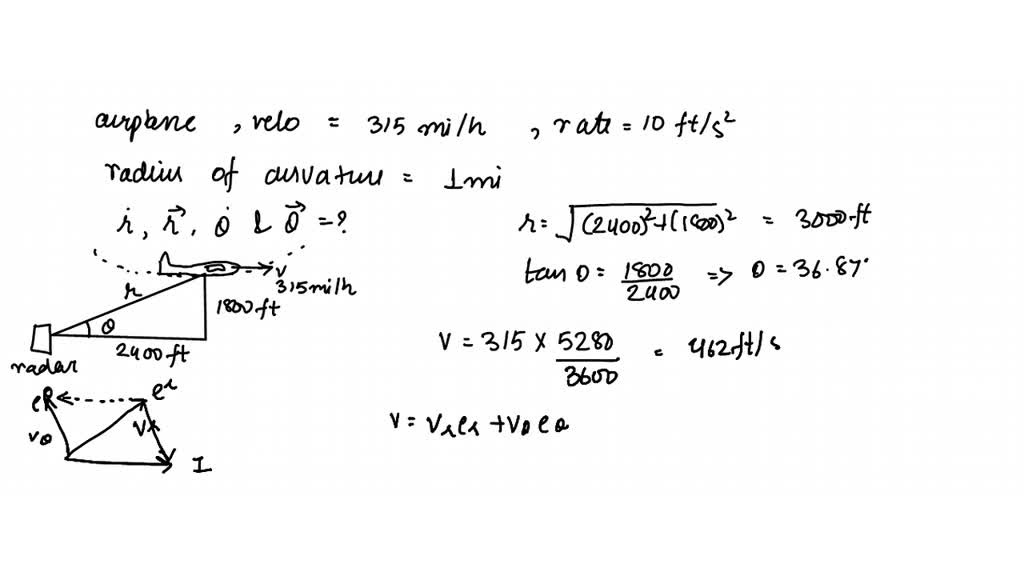 airplane , velo = 315 mi/h , rate = 10 ft/s²
radius of curvature = 1mi
ṙ, r⃗, θ̇ & θ⃗ = ?
r = √(2400)²+(1800)² = 3000 ft
tan θ = 1800/2400 => θ = 36.87°
v
315 mi/h
r
1800 ft
θ
2400 ft
radar
v = 315 × 5280/3600 = 462 ft/s
er
vθ
I
v = vr er + vθ eθ